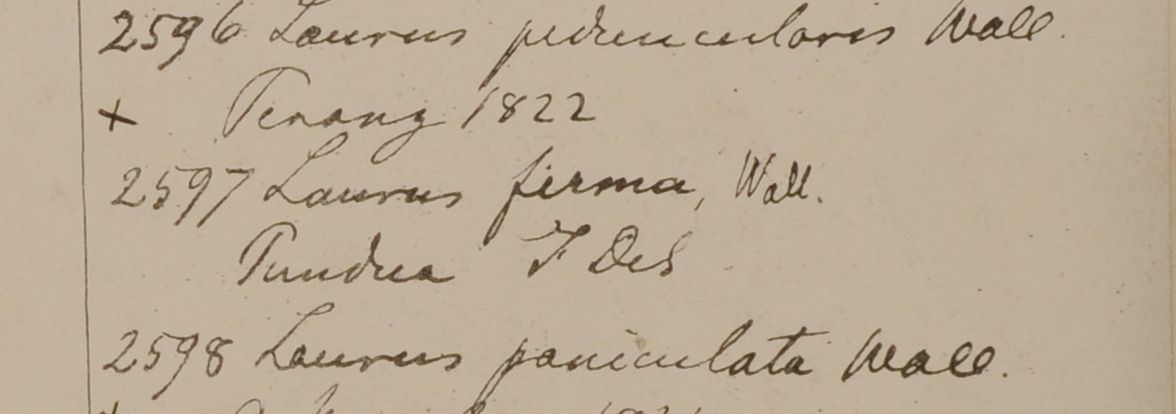 2596 Laurus peduncularis Wall.
+ Penang 1822
2597 Laurus firma, Wall.
Pundua F De S
2598 Laurus paniculata Wall.